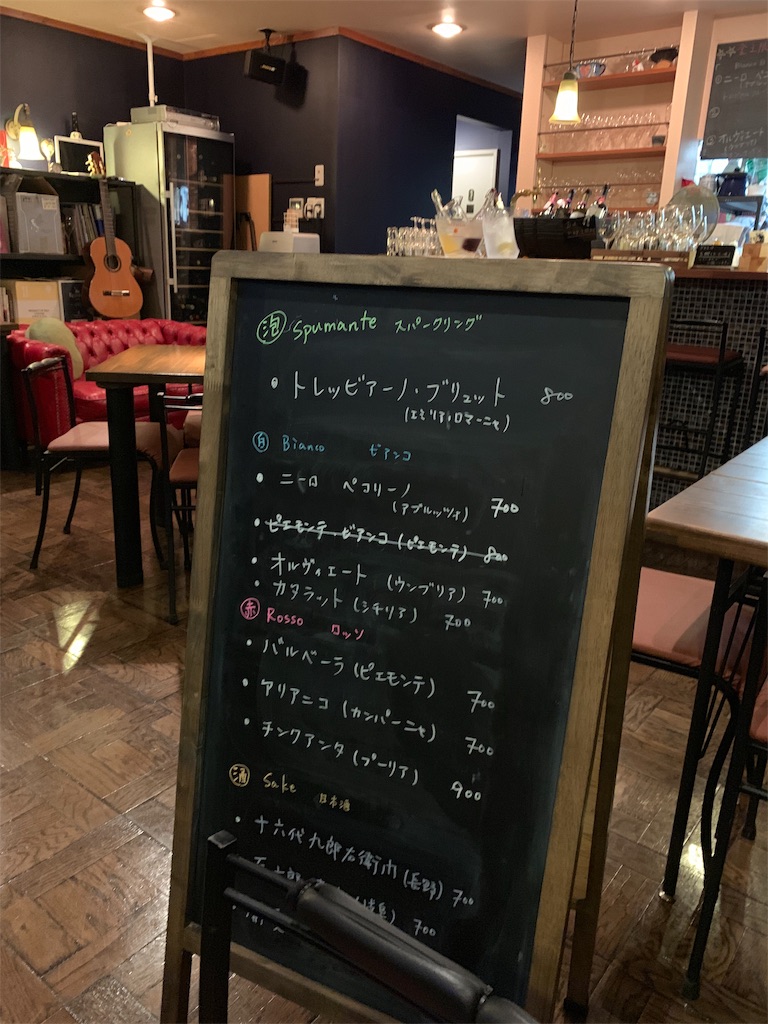 泡 Spumante スパークリング
・トレッビアーノ・ブリュット 800
(エミリア・ロマーニャ)
白 Bianco ビアンコ
・ニーロ ペコリーノ 700
(アブルッツォ)
・ピエモンテ ビアンコ (ピエモンテ) 800
・オルヴィエート (ウンブリア) 700
・カタラット (シチリア) 700
赤 Rosso ロッソ
・バルベーラ (ピエモンテ) 700
・アリアニコ (カンパーニャ) 700
・チンクアンタ (プーリア) 900
酒 Sake 日本酒
・十六代九郎右衛門 (長野) 700
700
オルヴィエート